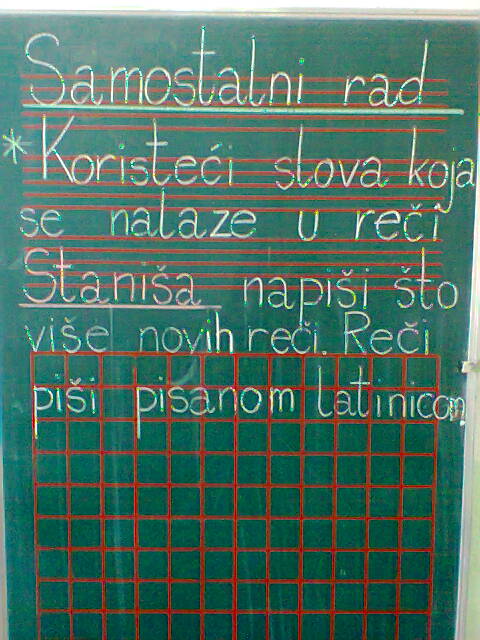 Samostalni rad
* Koristeći slova koja
se nalaze u reči
Staniša napiši što
više novih reči. Reči
piši pisanom latinicom.